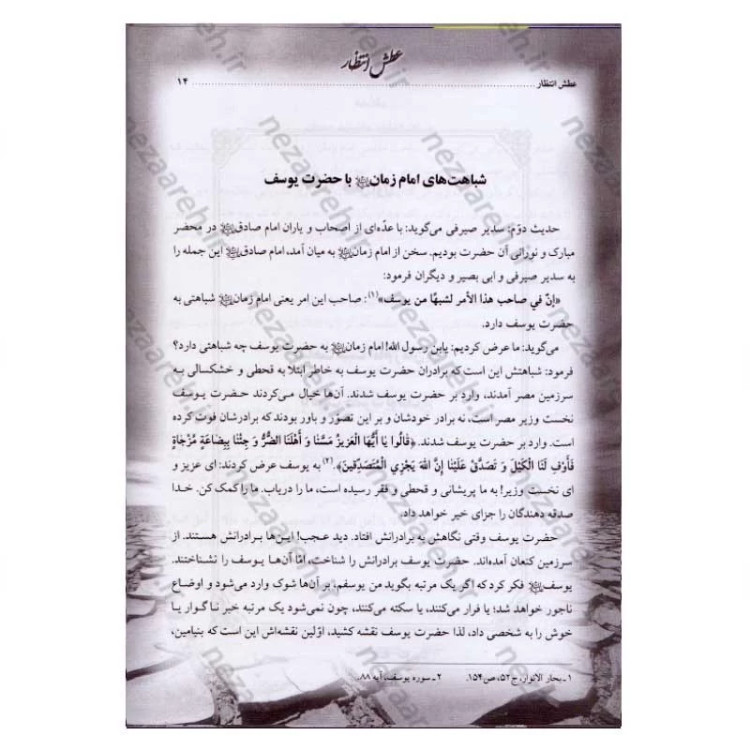 عطش انتظار
عطش انتظار ........ ۱۴
شباهت‌های امام زمان با حضرت یوسف
حدیث دوّم: سدیر صیرفی می‌گوید: با عدّه‌ای از اصحاب و یاران امام صادق در محضر
مبارک و نورانی آن حضرت بودیم. سخن از امام زمان به میان آمد، امام صادق این جمله را
به سدیر صیرفی و ابی بصیر و دیگران فرمود:
«إنّ في صاحب هذا الأمر لشبهًا من یوسف»(۱): صاحب این امر یعنی امام زمان شباهتی به
حضرت یوسف دارد.
می‌گوید: ما عرض کردیم: یابن رسول الله! امام زمان به حضرت یوسف چه شباهتی دارد؟
فرمود: شباهتش این است که برادران حضرت یوسف به خاطر ابتلا به قحطی و خشکسالی به
سرزمین مصر آمدند، وارد بر حضرت یوسف شدند. آن‌ها خیال می‌کردند حضرت یوسف
نخست وزیر مصر است، نه برادر خودشان و بر این تصوّر و باور بودند که برادرشان فوت کرده
است. وارد بر حضرت یوسف شدند. ﴿قَالُوا يَا أَيُّهَا الْعَزِيزُ مَسَّنَا وَ أَهْلَنَا الضُّرُّ وَ جِئْنَا بِبِضَاعَةٍ مُزْجَاةٍ
فَأَوْفِ لَنَا الْكَيْلَ وَ تَصَدَّقْ عَلَيْنَا إِنَّ اللهَ يَجْزِي الْمُتَصَدِّقِينَ﴾.(۲) به یوسف عرض کردند: ای عزیز و
ای نخست وزیر! به ما پریشانی و قحطی و فقر رسیده است، ما را دریاب. ما را کمک کن. خدا
صدقه دهندگان را جزای خیر خواهد داد.
حضرت یوسف وقتی نگاهش به برادرانش افتاد. دید عجب! این‌ها برادرانش هستند. از
سرزمین کنعان آمده‌اند. حضرت یوسف برادرانش را شناخت، امّا آن‌ها یوسف را نشناختند.
یوسف فکر کرد که اگر یک مرتبه بگوید من یوسفم، بر آن‌ها شوک وارد می‌شود و اوضاع
ناجور خواهد شد؛ یا فرار می‌کنند، یا سکته می‌کنند، چون نمی‌شود یک مرتبه خبر ناگوار یا
خوش را به شخصی داد، لذا حضرت یوسف نقشه کشید، اوّلین نقشه‌اش این است که بنیامین،
۱ـ بحار الأنوار، ج ۵۲، ص ۱۵۴. ۲ـ سوره یوسف، آیه ۸۸.
nezaareh.ir